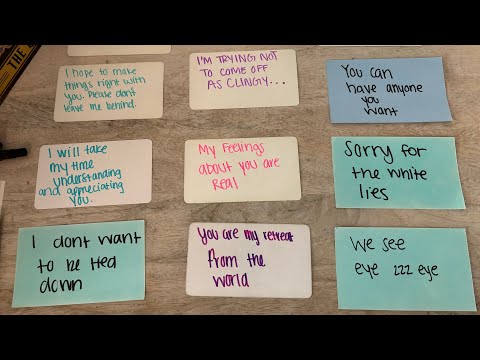 THE
I hope to make
things right with
you. Please dont
leave me behind.
I'M TRYING NOT
TO COME OFF
AS CLINGY...
You can
have anyone
you
want
I will take
my time
understanding
and appreciating
you.
My Feelings
about you are
Real
Sorry for
the white
lies
I dont want
to be tied
down
You are my retreat
from the
world
We see
eye 222 eye